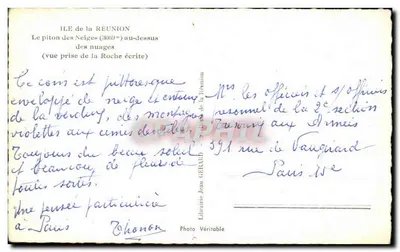 ILE de la RÉUNION
Le piton des Neiges (3069m) au-dessus
des nuages
(vue prise de la Roche écrite)
Ce coin est pittoresque
enveloppé de neige et entouré
de la verdure, des montagnes
violettes aux cimes
Toujours du beau soleil
et beaucoup de fleurs de
toutes sortes.
Une pensée particulière
à Paris Thonon
Librairie Jean GERARD de la Réunion
Photo Véritable
Mrs les officiers et s/officiers
personnel de la 2e section
Trésors aux Armées
391 rue de Vaugirard
Paris 15e